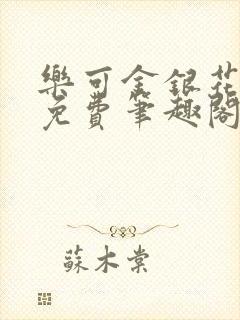 樂可金銀花
免費筆趣閣
蘇木棠